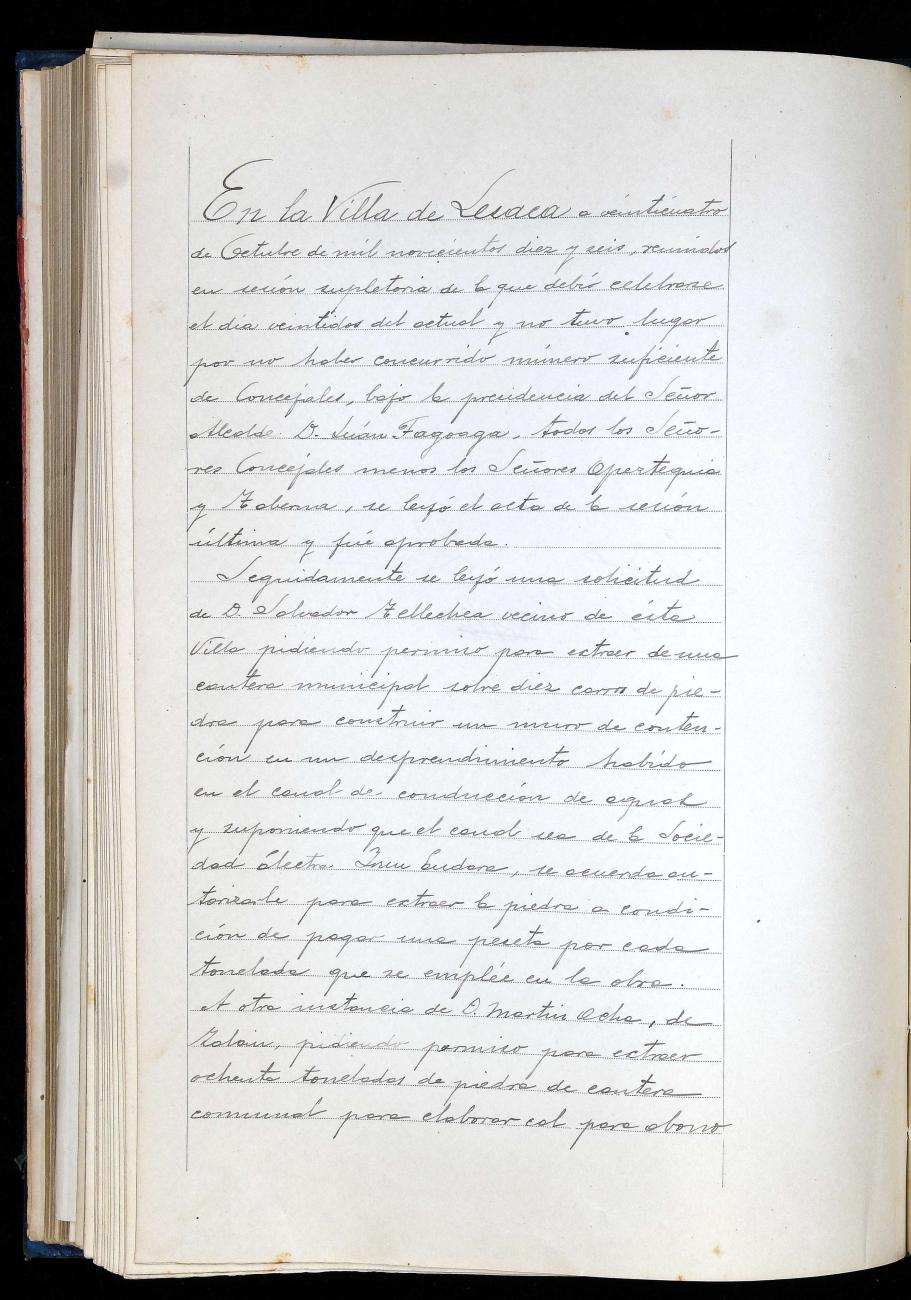 En la Villa de Lesaca a veinticuatro
de Octubre de mil novecientos diez y seis, reunidos
en sesión supletoria de la que debió celebrarse
el día veintidos del actual y no tuvo lugar
por no haber concurrido número suficiente
de Concejales, bajo la presidencia del Señor
Alcalde D. Juán Fagoaga, todos los Seño-
res Concejales menos los Señores Apezteguia
y Taberna, se leyó el acta de la sesión
última y fué aprobada.
Seguidamente se leyó una solicitud
de D. Salvador Tellechea vecino de ésta
Villa pidiendo permiso para extraer de una
cantera municipal sobre diez carros de pie-
dra para construir un muro de conten-
ción en un desprendimiento habido
en el canal de conducción de aguas
y suponiendo que el canal sea de la Socie-
dad Electra Irun Endara, se acuerda au-
torizarle para extraer la piedra a condi-
ción de pagar una peseta por cada
tonelada que se emplée en la obra.
A otra instancia de D. Martin Ocha, de
Zalain, pidiendo permiso para extraer
ochenta toneladas de piedra de cantera
comunal para elaborar cal para abono